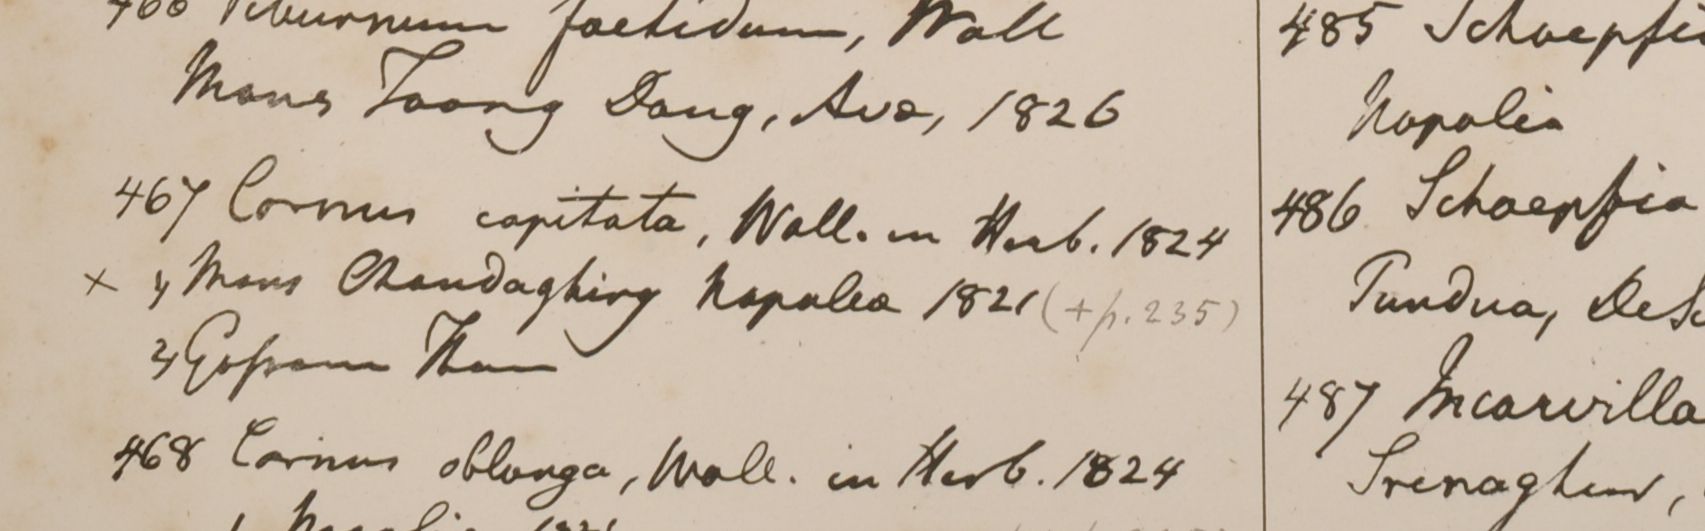 466 Viburnum foetidum, Wall
Mons Taong Dong, Ava, 1826
467 Cornus capitata, Wall. in Herb. 1824
x 1, Mons Chandaghiry Napalea 1821 (+p. 235)
2, Gossam Than
468 Cornus oblonga, Wall. in Herb. 1824
1 Napalia 1821
485 Schoepfia
Napalia
486 Schoepfia
Pundua, DeS
487 Incarvilla
Srenaghur,